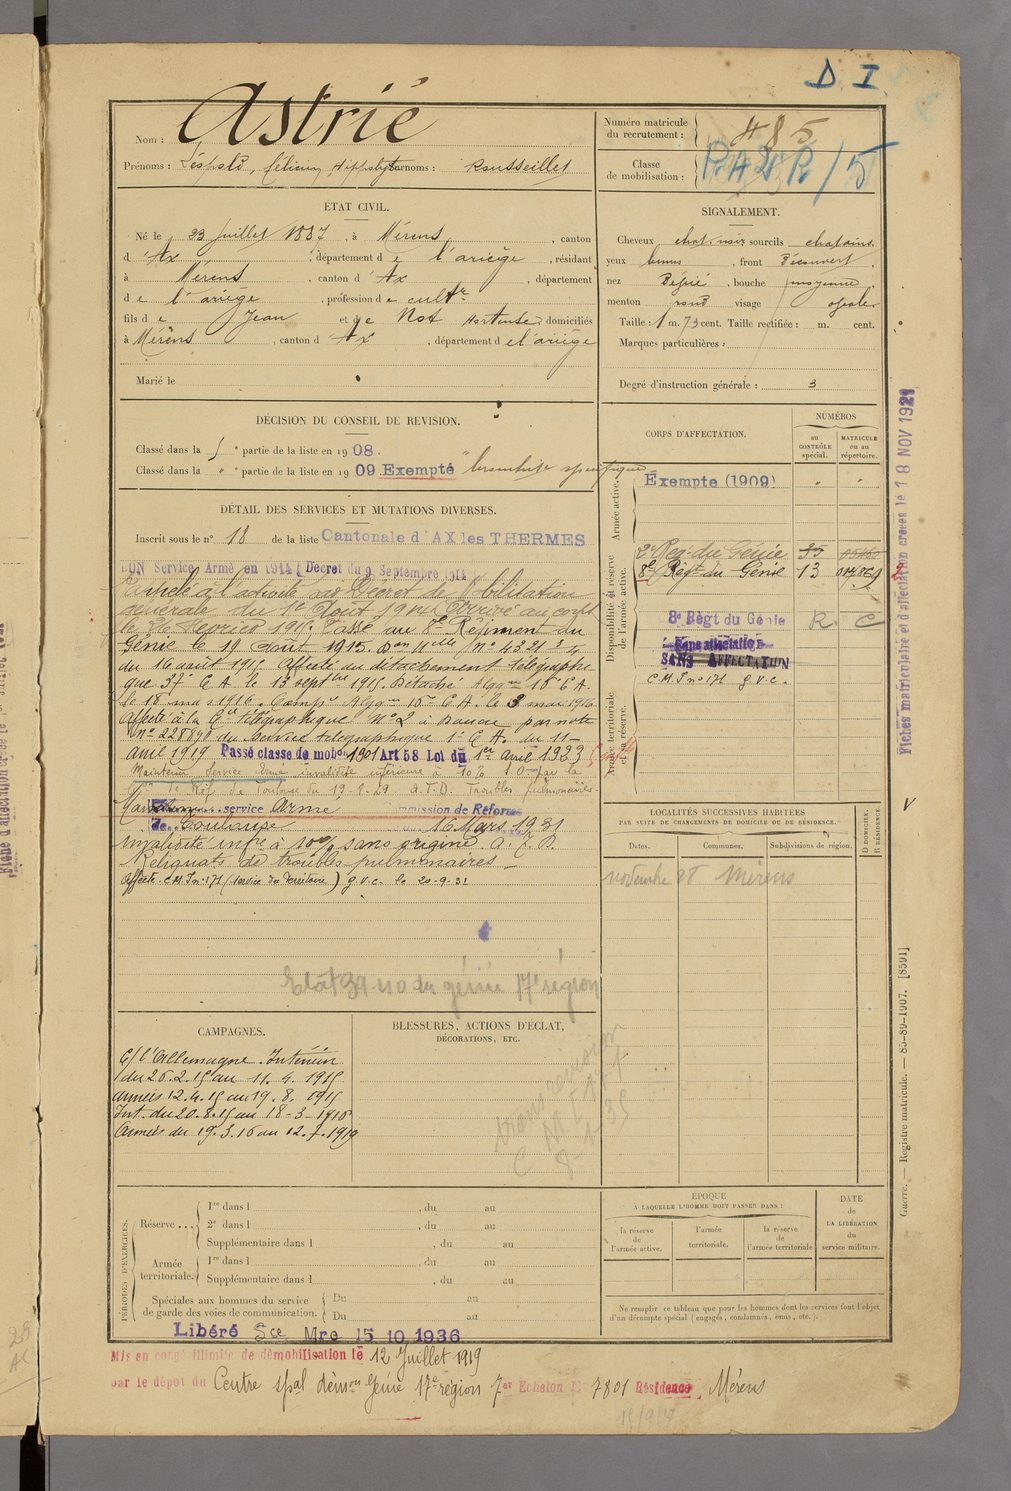 D I
Nom : Astrié
Prénoms : Léopold, Célicien, Hippolyte Surnoms : Rousseillet
Numéro matricule du recrutement : 485
Classe de mobilisation :
ÉTAT CIVIL.
Né le 23 juillet 1887, à Mérens, canton
d'Ax, département de l'ariège, résidant
à Mérens, canton d'Ax, département
de l'ariège, profession de cultr
fils de Jean et de Not Hortense domiciliés
à Mérens, canton d'Ax, département de l'ariège
Marié le
SIGNALEMENT.
Cheveux chat. noir sourcils chatains
yeux bruns, front Découvert,
nez , bouche moyenne
menton rond visage ovale
Taille : 1 m. 73 cent. Taille rectifiée : m. cent.
Marques particulières :
Degré d'instruction générale : 3
DÉCISION DU CONSEIL DE REVISION.
Classé dans la partie de la liste en 1908.
Classé dans la " partie de la liste en 1909 Exempté "bronchite spécifique
DÉTAIL DES SERVICES ET MUTATIONS DIVERSES.
Inscrit sous le n° 18 de la liste Cantonale d'AX les THERMES
BON Service Armé en 1914 (Décret du 9 Septembre 1914)
Rappelé à l'activité par Décret de Mobilisation
générale du 1er Août 1914. Arrivé au corps
le 26 fevrier 1915. Passé au 8e Régiment du
Génie le 19 Août 1915. Don n° 4321 3/4
du 16 août 1915. Affecté au détachement télégraphi-
que 37e C.A. le 13 septbre 1915. Détaché 18e C.A.
le 18 mars 1916. 18e C.A. le 3 mai 1916.
Affecté à la Cie télégraphique N°2 à par note
N° 228890 du service télégraphique 1er C.A. du 11
avril 1919 Passé classe de mobon 1901 Art 58 Loi du 1er avril 1923
Maintenu Service Armé invalidité inférieure à 10% S.O. par la
C. de Réf. de Toulouse du 19.2.29. A.T.D. Troubles pulmonaires.
Maintenu service Armé Commission de Réforme
de Toulouse du 16 Mars 1931
invalidité infre à 10% sans origine. A.T.D.
Reliquats de troubles pulmonaires
Affecté C.M.I n° 171 (Service du Territoire) g.v.c. le 20-9-31
Etat 39-40 du génie 17e région
CORPS D'AFFECTATION.
NUMÉROS
au CONTRÔLE spécial.
MATRICULE ou au répertoire.
Armée active.
Exempte (1909) " "
Disponibilité et réserve de l'armée active.
2e Reg. du Génie
8e Régt du Génie 13
8e Règt du Génie R C
Sans affectation
SANS AFFECTATION
C.M.I n° 171 g.v.c.
Armée territoriale et sa réserve.
LOCALITÉS SUCCESSIVES HABITÉES
PAR SUITE DE CHANGEMENTS DE DOMICILE OU DE RÉSIDENCE.
Dates. Communes. Subdivisions de région. D DOMICILE. R RÉSIDENCE
novembre 28 Mérens
CAMPAGNES.
C/ l'Allemagne. Intérieur
du 26.2.15 au 11.4.1915
armées 12.4.15 au 19.8.1915
Int. du 20.8.15 au 18-3-1916
Armées du 19.3.16 au 12.7.1919
BLESSURES, ACTIONS D'ÉCLAT,
DÉCORATIONS, ETC.
PÉRIODES D'EXERCICES.
Réserve ... 1re dans l , du au
2e dans l , du au
Supplémentaire dans l , du au
Armée territoriale. 1re dans l , du au
Supplémentaire dans l , du au
Spéciales aux hommes du service de garde des voies de communication. Du au
Du au
ÉPOQUE
À LAQUELLE L'HOMME DOIT PASSER DANS :
la réserve de l'armée active.
l'armée territoriale.
la réserve de l'armée territoriale
DATE de LA LIBÉRATION du service militaire.
Ne remplir ce tableau que pour les hommes dont les services font l'objet
d'un décompte spécial (engagés, condamnés, omis, etc.).
Libéré Sce Mre 15 10 1936
Mis en congé illimité de démobilisation le 12 Juillet 1919
par le dépôt du Centre spal démon Génie 17e région 7er Echelon N° 7801 Résidence Mérens
Fiches matriculaire et d'affectation créées le 18 NOV 1921
Guerre. — Registre matricule. — 85-89-1907. [8591]